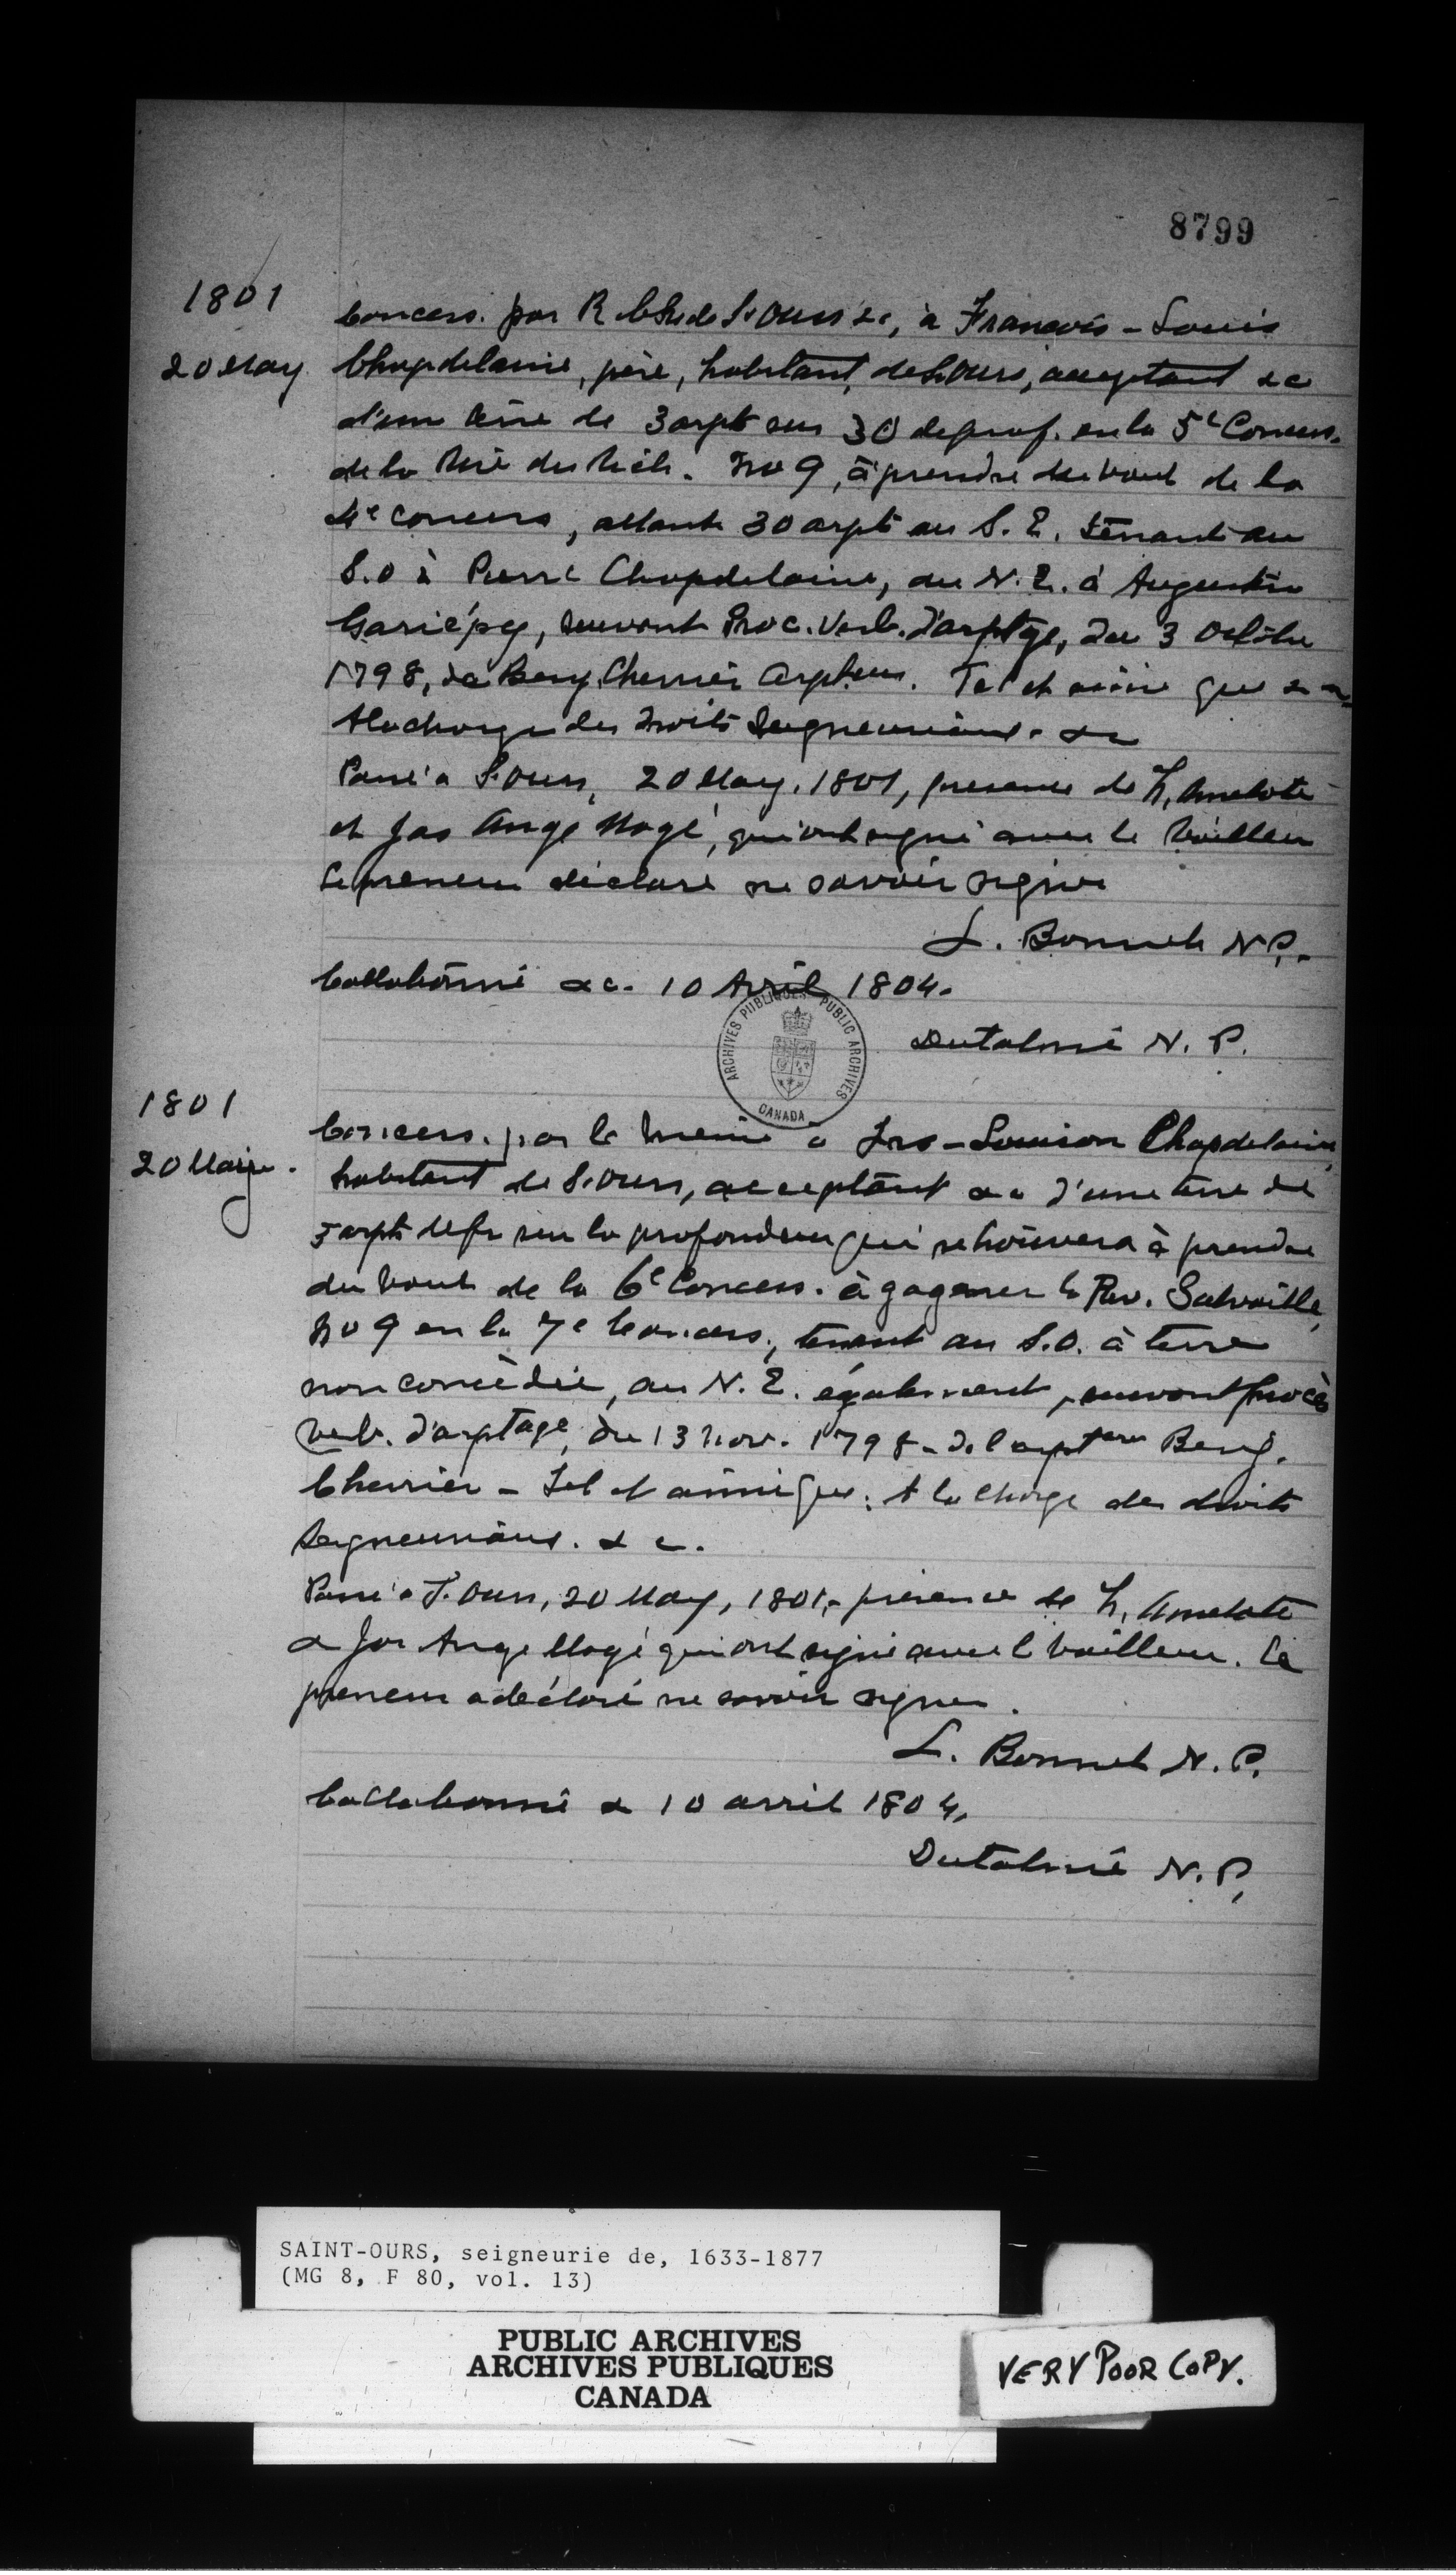 8799
1801
20 May
Concess. par R. Chs de St Ours &c, à François-Louis
Chapdelaine, père, habitant, de St Ours, acceptant &c
d'une terre de 3 arpts sur 30 de prof. en la 5e Concess.
de la Riv. du Rich. No 9, à prendre du bout de la
4e Concess, allant 30 arpts au S. E. tenant au
S.O à Pierre Chapdelaine, au N. E. à Augustin
Gariépy, suivant Proc. Verb. d'arptge, du 3 Octobre
1798, de Benj. Cherrier Arpteur. Tel et ainsi que &c
A la charge des droits Seigneuriaux. &c
Passé à St Ours, 20 May. 1801, presence de h. Amelote
et Jos Ange Magé, qui ont signé avec le bailleur
Le preneur déclaré ne savoir signer
L. Bonnet N.P.
Collationné &c. 10 Avril 1804.
Dutalmé N. P.
ARCHIVES PUBLIQUES PUBLIC ARCHIVES
CANADA
1801
20 May
Concess. par le meme à Frs-Louison Chapdelaine,
habitant de St Ours, acceptant &c d'une terre de
3 arpts de fr sur la profondeur qui se trouvera à prendre
du bout de la 6e Concess. à gagner la Riv. Salvaille,
No 9 en la 7e Concess, tenant au S.O. à terre
non concédée, au N. E. également, suivant procès
verb. d'arptage, du 13 nov. 1798 - de l'arpteur Benj.
Cherrier - Tel et ainsi que: A la charge des droits
Seigneuriaux. &c.
Passé à St. Ours, 20 May, 1801, - présence de h. Amelote
& Jos Ange Magé qui ont signé avec l bailleur. Le
preneur a déclaré ne savoir signer.
L. Bonnet N. P.
Collationné & 10 avril 1804,
Dutalmé N. P.
SAINT-OURS, seigneurie de, 1633-1877
(MG 8, F 80, vol. 13)
PUBLIC ARCHIVES
ARCHIVES PUBLIQUES
CANADA
VERY POOR COPY.